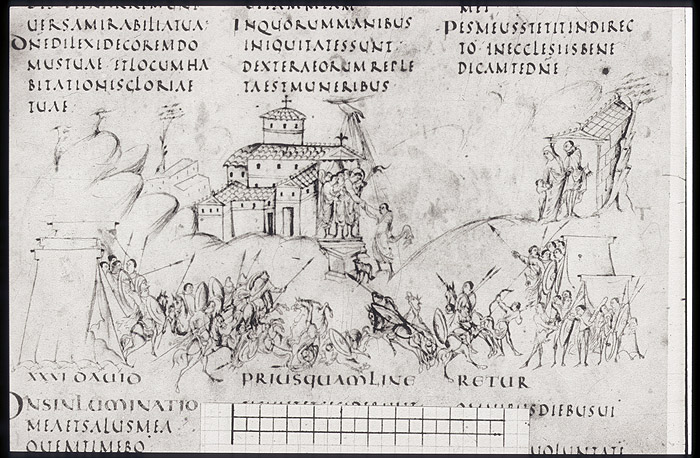 UERSAMIRABILIATUA
DNEDILEXIDECOREMDO
MUSTUAE ETLOCUMHA
BITATIONISGLORIAE
TUAE
INQUORUMMANIBUS
INIQUITATESSUNT
DEXTERAEORUMREPLE
TAESTMUNERIBUS
MEI
PESMEUSSTETITINDIREC
TO INECCLESIISBENE
DICAMTEDNE
XXVI DAUID PRIUSQUAMLINE RETUR
DNSINLUMINATIO
MEAETSALUSMEA
QUEMTIMEBO
OMNIBUSDIEBUSUI